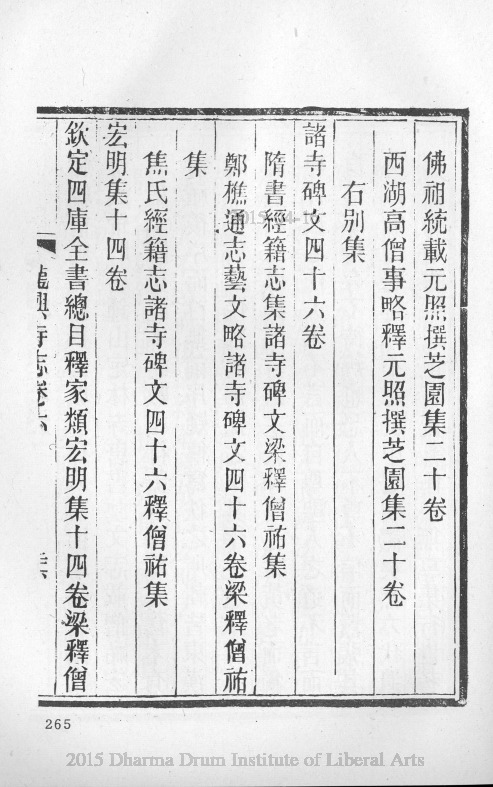 佛祖統載元照撰芝園集二十卷
西湖高僧事略釋元照撰芝園集二十卷
右別集
諸寺碑文四十六卷
隋書經籍志集諸寺碑文梁釋僧祐集
鄭樵通志藝文略諸寺碑文四十六卷梁釋僧祐
集
焦氏經籍志諸寺碑文四十六釋僧祐集
宏明集十四卷
欽定四庫全書總目釋家類宏明集十四卷梁釋僧
龍興寺志卷六
265
2015 Dharma Drum Institute of Liberal Arts